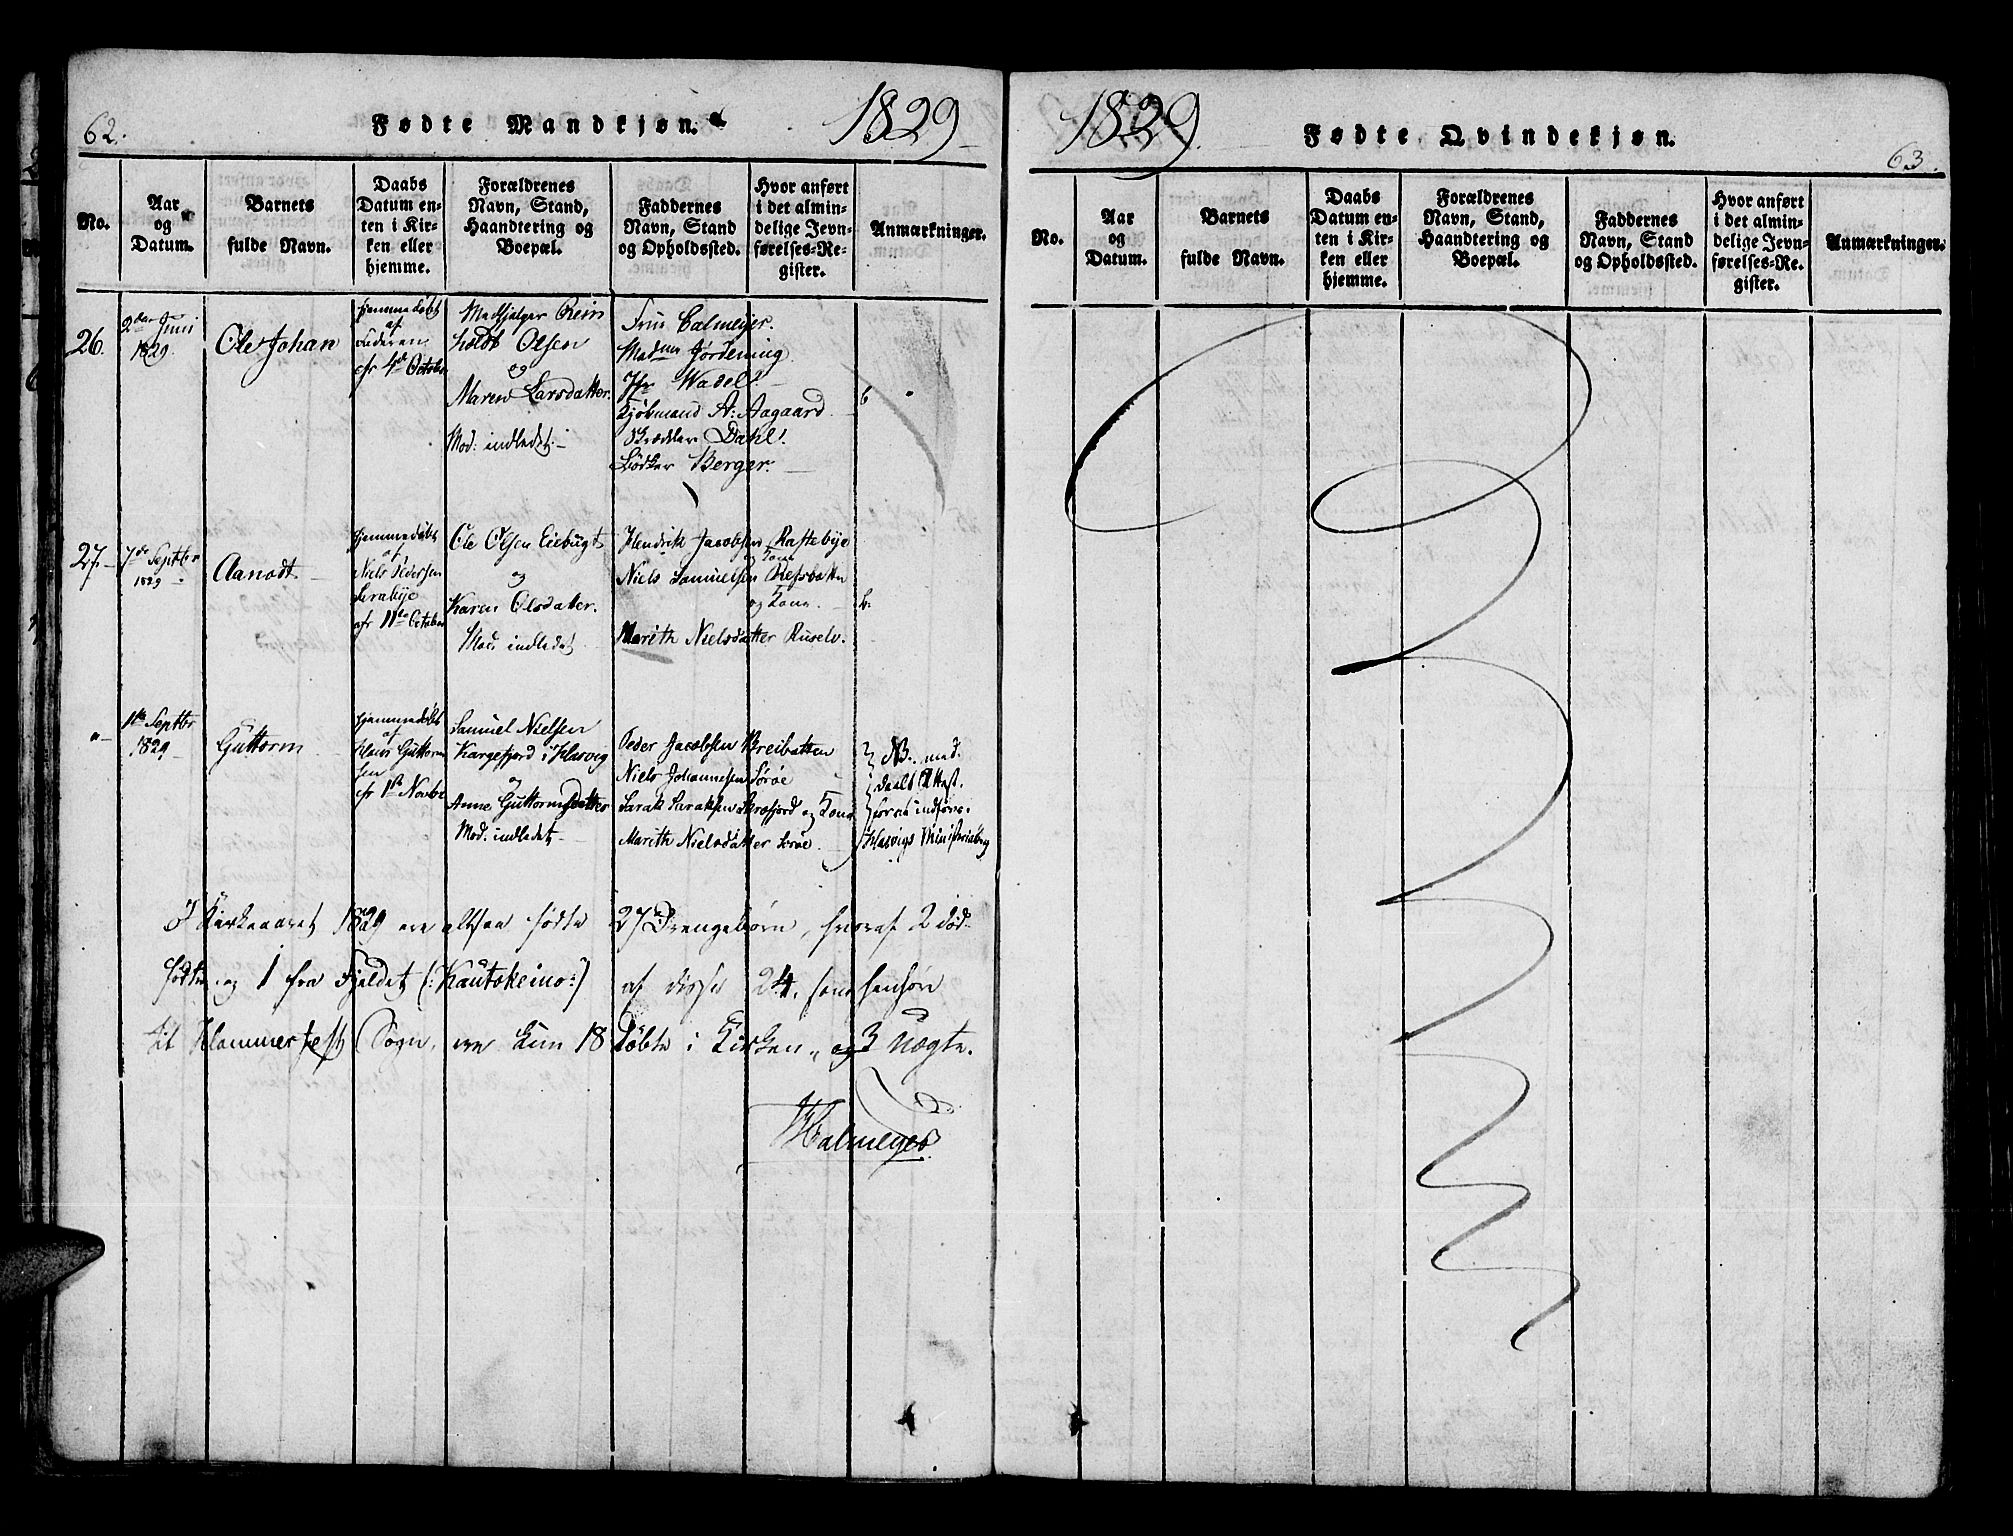 62.
Fødte Mandkjøn.
1829
No.
Aar og Datum.
Barnets fulde Navn.
Daabs Datum enten i Kirken eller hjemme.
Forældrenes Navn, Stand, Haandtering og Boepæl.
Faddernes Navn, Stand og Opholdssted.
Hvor anført i det almindelige Jevnførelses-Register.
Anmærkninger.
26.
2den Juni
1829.
Ole Johan
hjemmedøbt
af
Faderen
cfr 4de October
Medhjelper Rein
holdt Olsen
og
Maren Larsdatter.
Mod: indledet.
Fru Calmeyer.
Madme Jordening.
Jfr Wadel.
Kjøbmand A: Aagaard.
Dahl.
Bödker Berger.
6
27
7de Septbr
1829
Aanodt.
hjemmedøbt
af
Niels Pedersen
cfr 11te October
Ole Olsen Eiebugt
og
Karen Olsdatter.
Mod: indledet
Hendrik Jacobsen Kastebye
og Kone
Niels Samuelsen Refsbotten
og Kone.
Marith Nielsdatter Ruselv.
6.
1te Septbr
1829
Guttorm
hjemmedøbt
af
Hans Guttorm
sen
cfr 1ste Novbr
Samuel Nielsen
Kargefjord i Hasvig
og
Anne Guttormsdatter
Mod: indledet
Peder Jacobsen Breibotten
Niels Johannessen Sörøe
Sarak Saraksen og Kone
Marith Nielsdatter Sörøe.
NB. med
Daabs Attest.
indføres i
Hasvigs Ministerialbog
I Kirkeaaret 1829 ere altsaa fødte 27 Drengebørn, hvoraf 2 död-
födte og 1 fra Fjeldet (:Kautokeino:) af disse 24, som henhøre
til Hammerfest Sogn, ere kun 18 Döbte i Kirken, og 3 uægte.
Calmeyer
1829.
Fødte Qvindekjøn.
63.
No.
Aar og Datum.
Barnets fulde Navn.
Daabs Datum enten i Kirken eller hjemme.
Forældrenes Navn, Stand, Haandtering og Boepæl.
Faddernes Navn, Stand og Opholdssted.
Hvor anført i det almindelige Jevnførelses-Register.
Anmærkninger.